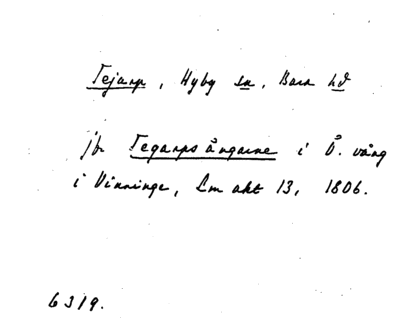 Tejarp, Hyby sn, Bara hd
jfr Tegarpsängarne i Ö. vång
i Vinninge, Lm akt 13, 1806.
6319.